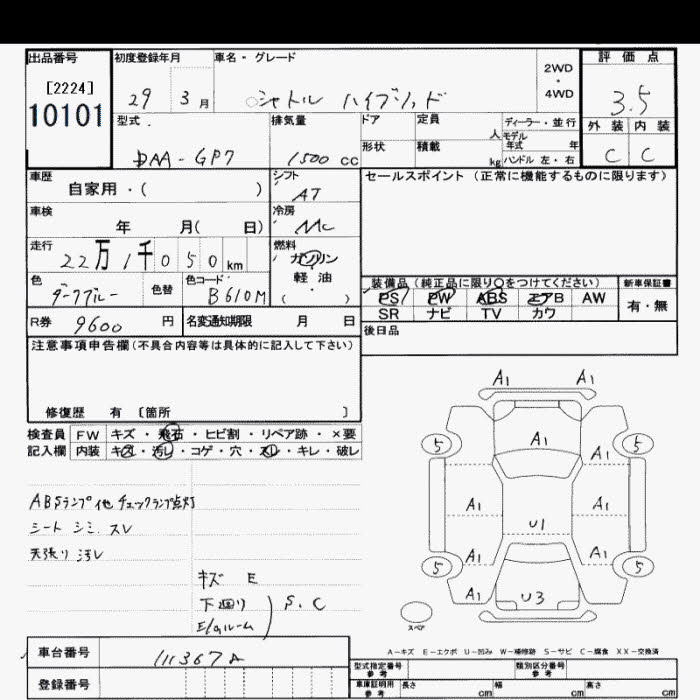 出品番号 初度登録年月 車名・グレード 2WD・4WD 評価点
[2224]
10101 29 3月 シャトル ハイブリッド 3.5
型式 排気量 ドア 定員 人 ディーラー・並行 外装 内装
モデル年式 年
DAA-GP7 1500cc 形状 積載 kg ハンドル 左・右 C C
車歴 シフト セールスポイント(正常に機能するものに限ります)
自家用・( ) AT
車検 冷房
年 月( 日) AC
走行 燃料
22万1千050km ガソリン
色 色替 色コード 軽・油 装備品(純正品に限り○をつけてください) 新車保証書
ダークブルー B610M ( ) PS PW ABS エアB AW 有・無
R券 9600円 名変通知期限 月 日 SR ナビ TV カワ
注意事項申告欄(不具合内容等は具体的に記入して下さい) 後日品
修復歴 有〔箇所 〕
検査員 FW キズ・飛石・ヒビ割・リペア跡・×要
記入欄 内装 キズ・汚レ・コゲ・穴・スレ・キレ・破レ
ABSランプ他チェックランプ点灯
シート シミ スレ
天張り汚レ
キズ E
下廻り S.C
E/gルーム
A1 A1
A1
5 5
A1 A1
U1
A1 A1
5 5
A1 U3
スペア
A-キズ E-エクボ U-凹み W-補修跡 S-サビ C-腐食 XX-交換済
車台番号 111367A 型式指定番号 参考 類別区分番号 参考
登録番号 車庫証明用 参考 長さ cm 幅 cm 高さ cm